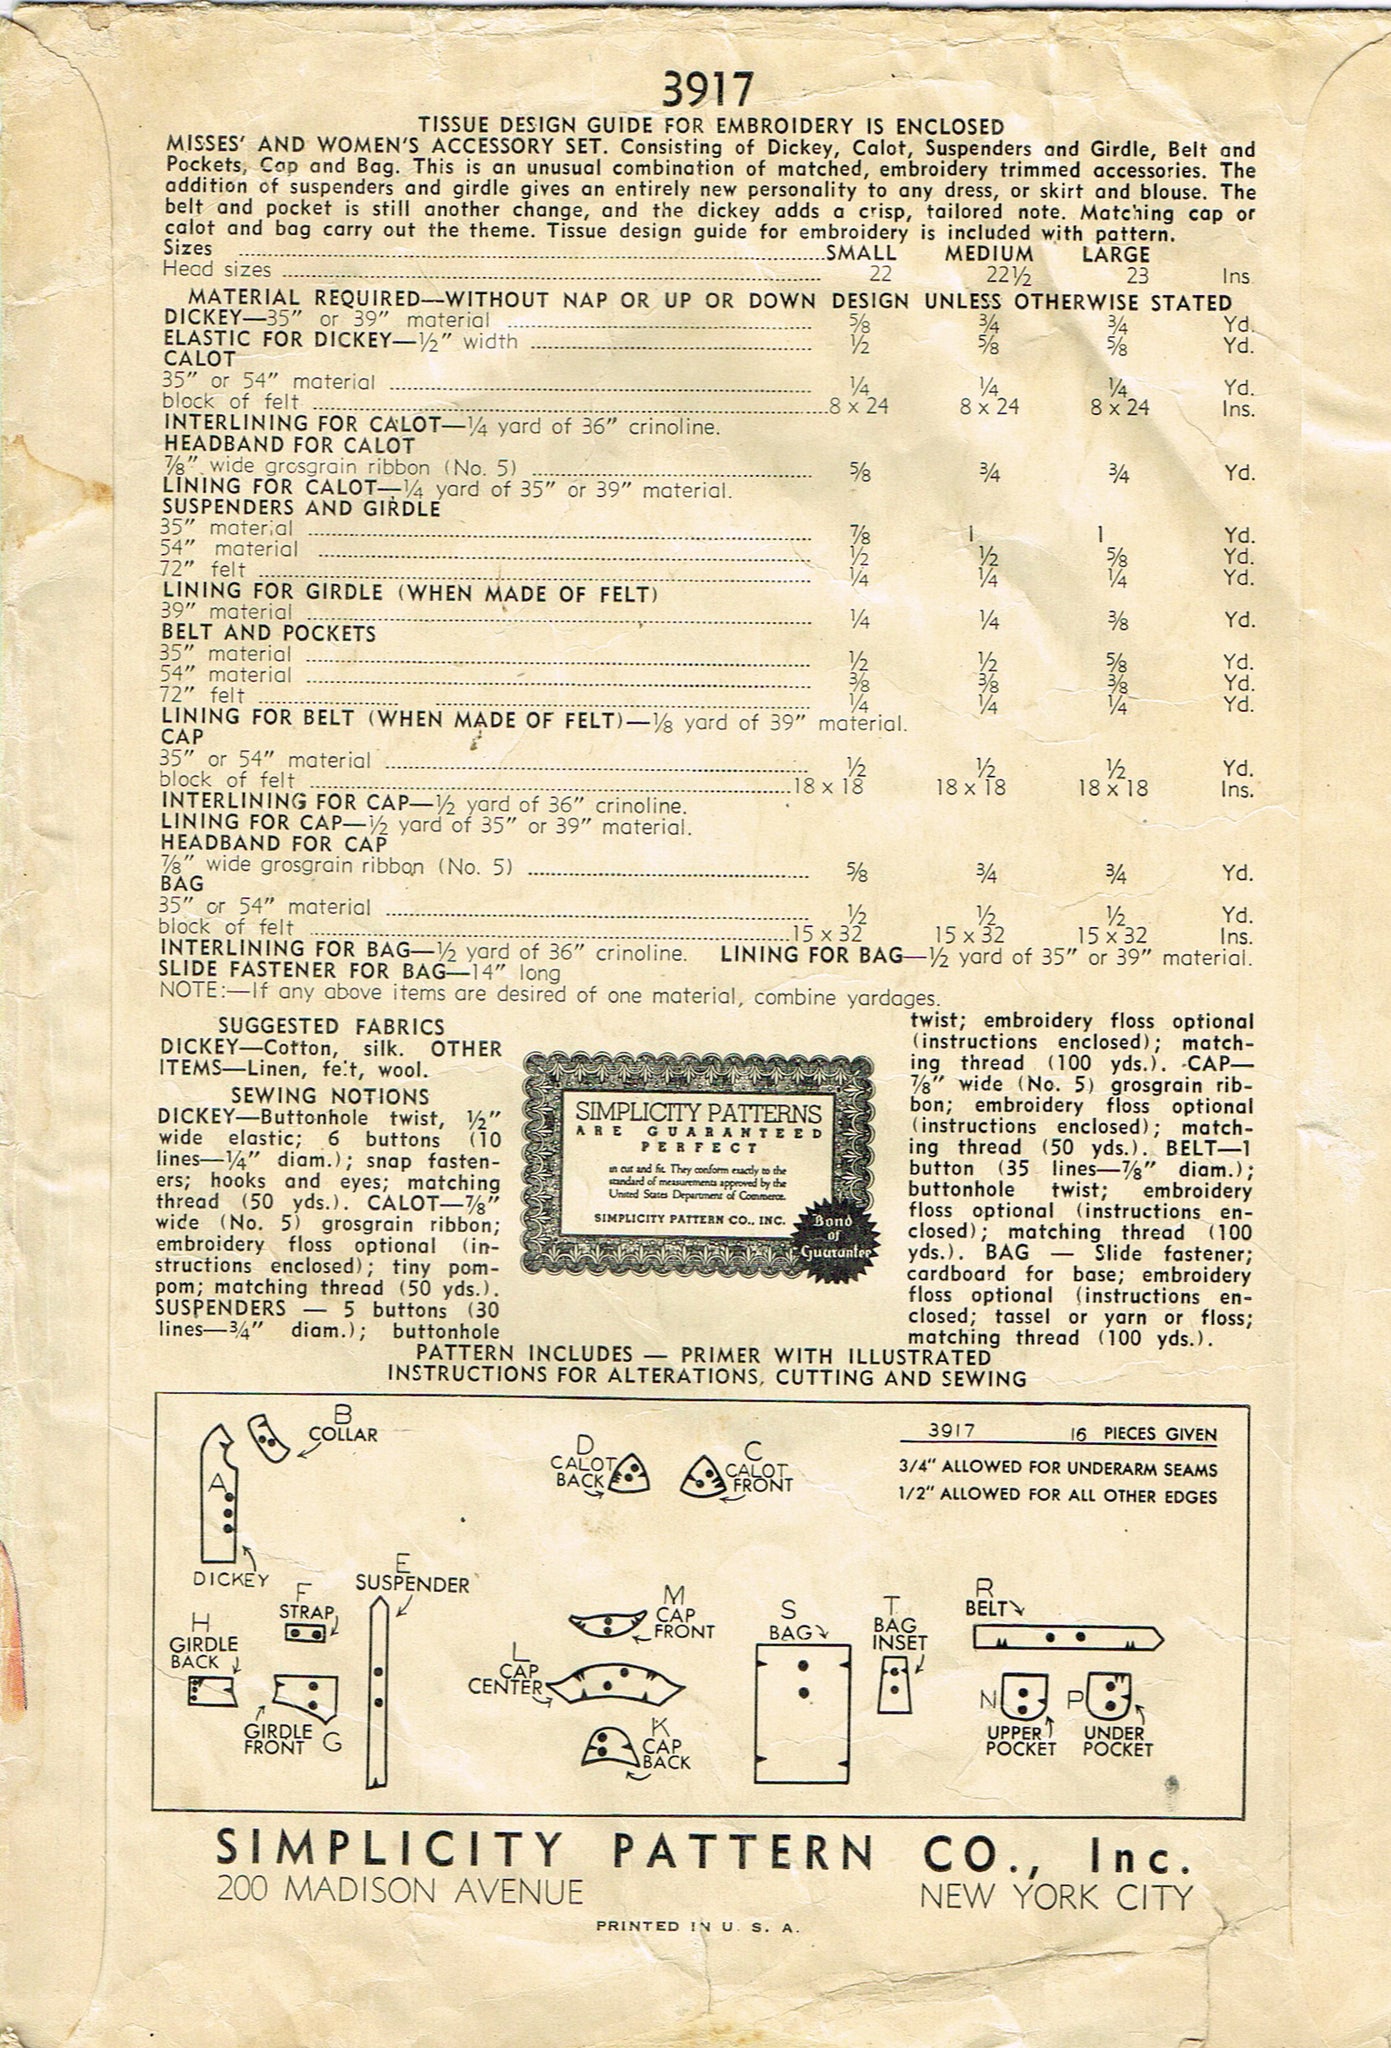 3917
TISSUE DESIGN GUIDE FOR EMBROIDERY IS ENCLOSED
MISSES' AND WOMEN'S ACCESSORY SET. Consisting of Dickey, Calot, Suspenders and Girdle, Belt and
Pockets, Cap and Bag. This is an unusual combination of matched, embroidery trimmed accessories. The
addition of suspenders and girdle gives an entirely new personality to any dress, or skirt and blouse. The
belt and pocket is still another change, and the dickey adds a crisp, tailored note. Matching cap or
calot and bag carry out the theme. Tissue design guide for embroidery is included with pattern.
Sizes SMALL MEDIUM LARGE
Head sizes 22 22½ 23 Ins
MATERIAL REQUIRED—WITHOUT NAP OR UP OR DOWN DESIGN UNLESS OTHERWISE STATED
DICKEY—35" or 39" material ⅝ ¾ ¾ Yd.
ELASTIC FOR DICKEY—½" width ½ ⅝ ⅝ Yd.
CALOT
35" or 54" material ¼ ¼ ¼ Yd.
block of felt 8 x 24 8 x 24 8 x 24 Ins.
INTERLINING FOR CALOT—¼ yard of 36" crinoline.
HEADBAND FOR CALOT
⅞" wide grosgrain ribbon (No. 5) ⅝ ¾ ¾ Yd.
LINING FOR CALOT—¼ yard of 35" or 39" material.
SUSPENDERS AND GIRDLE
35" material ⅞ 1 1 Yd.
54" material ½ ½ ⅝ Yd.
72" felt ¼ ¼ ¼ Yd.
LINING FOR GIRDLE (WHEN MADE OF FELT)
39" material ¼ ¼ ⅜ Yd.
BELT AND POCKETS
35" material ½ ½ ⅝ Yd.
54" material ⅜ ⅜ ⅜ Yd.
72" felt ¼ ¼ ¼ Yd.
LINING FOR BELT (WHEN MADE OF FELT)—⅛ yard of 39" material.
CAP
35" or 54" material ½ ½ ½ Yd.
block of felt 18 x 18 18 x 18 18 x 18 Ins.
INTERLINING FOR CAP—½ yard of 36" crinoline.
LINING FOR CAP—½ yard of 35" or 39" material.
HEADBAND FOR CAP
⅞" wide grosgrain ribbon (No. 5) ⅝ ¾ ¾ Yd.
BAG
35" or 54" material ½ ½ ½ Yd.
block of felt 15 x 32 15 x 32 15 x 32 Ins.
INTERLINING FOR BAG—½ yard of 36" crinoline. LINING FOR BAG—½ yard of 35" or 39" material.
SLIDE FASTENER FOR BAG—14" long
NOTE:—If any above items are desired of one material, combine yardages.
SUGGESTED FABRICS
DICKEY—Cotton, silk. OTHER
ITEMS—Linen, felt, wool.
SEWING NOTIONS
DICKEY—Buttonhole twist, ½"
wide elastic; 6 buttons (10
lines—¼" diam.); snap fasten-
ers; hooks and eyes; matching
thread (50 yds.). CALOT—⅞"
wide (No. 5) grosgrain ribbon;
embroidery floss optional (in-
structions enclosed); tiny pom-
pom; matching thread (50 yds.).
SUSPENDERS — 5 buttons (30
lines—¾" diam.); buttonhole
SIMPLICITY PATTERNS
ARE GUARANTEED
PERFECT
in cut and fit. They conform exactly to the
standard of measurements approved by the
United States Department of Commerce.
SIMPLICITY PATTERN CO., INC.
Bond
of
Guarantee
twist; embroidery floss optional
(instructions enclosed); match-
ing thread (100 yds.). CAP—
⅞" wide (No. 5) grosgrain rib-
bon; embroidery floss optional
(instructions enclosed); match-
ing thread (50 yds.). BELT—1
button (35 lines—⅞" diam.);
buttonhole twist; embroidery
floss optional (instructions en-
closed); matching thread (100
yds.). BAG — Slide fastener;
cardboard for base; embroidery
floss optional (instructions en-
closed; tassel or yarn or floss;
matching thread (100 yds.).
PATTERN INCLUDES — PRIMER WITH ILLUSTRATED
INSTRUCTIONS FOR ALTERATIONS, CUTTING AND SEWING
B
COLLAR
A
DICKEY
D
CALOT
BACK
C
CALOT
FRONT
3917 16 PIECES GIVEN
3/4" ALLOWED FOR UNDERARM SEAMS
1/2" ALLOWED FOR ALL OTHER EDGES
E
SUSPENDER
F
STRAP
H
GIRDLE
BACK
GIRDLE
FRONT G
M
CAP
FRONT
L
CAP
CENTER
K
CAP
BACK
S
BAG
T
BAG
INSET
R
BELT
N
UPPER
POCKET
P
UNDER
POCKET
SIMPLICITY PATTERN CO., Inc.
200 MADISON AVENUE NEW YORK CITY
PRINTED IN U. S. A.